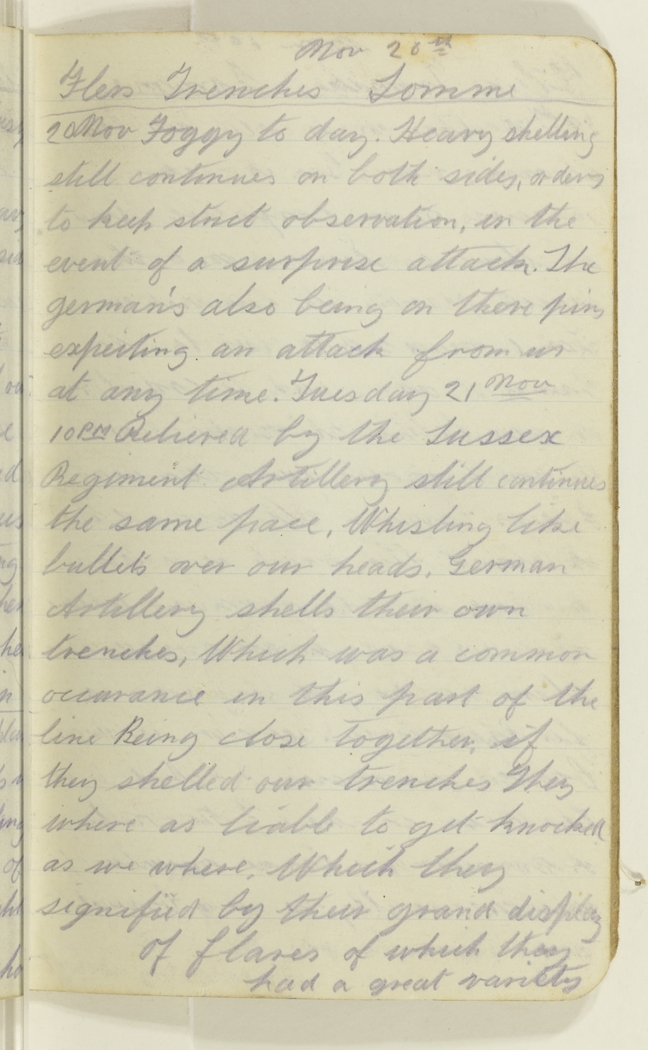 Nov 20th
Flers Trenches Somme
20 Nov Foggy to day. Heavy shelling
still continues on both sides, orders
to keep strict observation, in the
event of a surprise attack. The
german's also being on there pins
expecting an attack from us
at any time. Tuesday 21 Nov
10 PM Relieved by the Sussex
Regiment. Artillery still continues
the same pace, Whisling like
bullets over our heads. German
Artillery shells their own
trenches, Which was a common
occurance in this part of the
line Being close together, if
they shelled our trenches They
where as liable to get knocked
as we where. Which they
signified by their grand display
of flares of which they
had a great variety